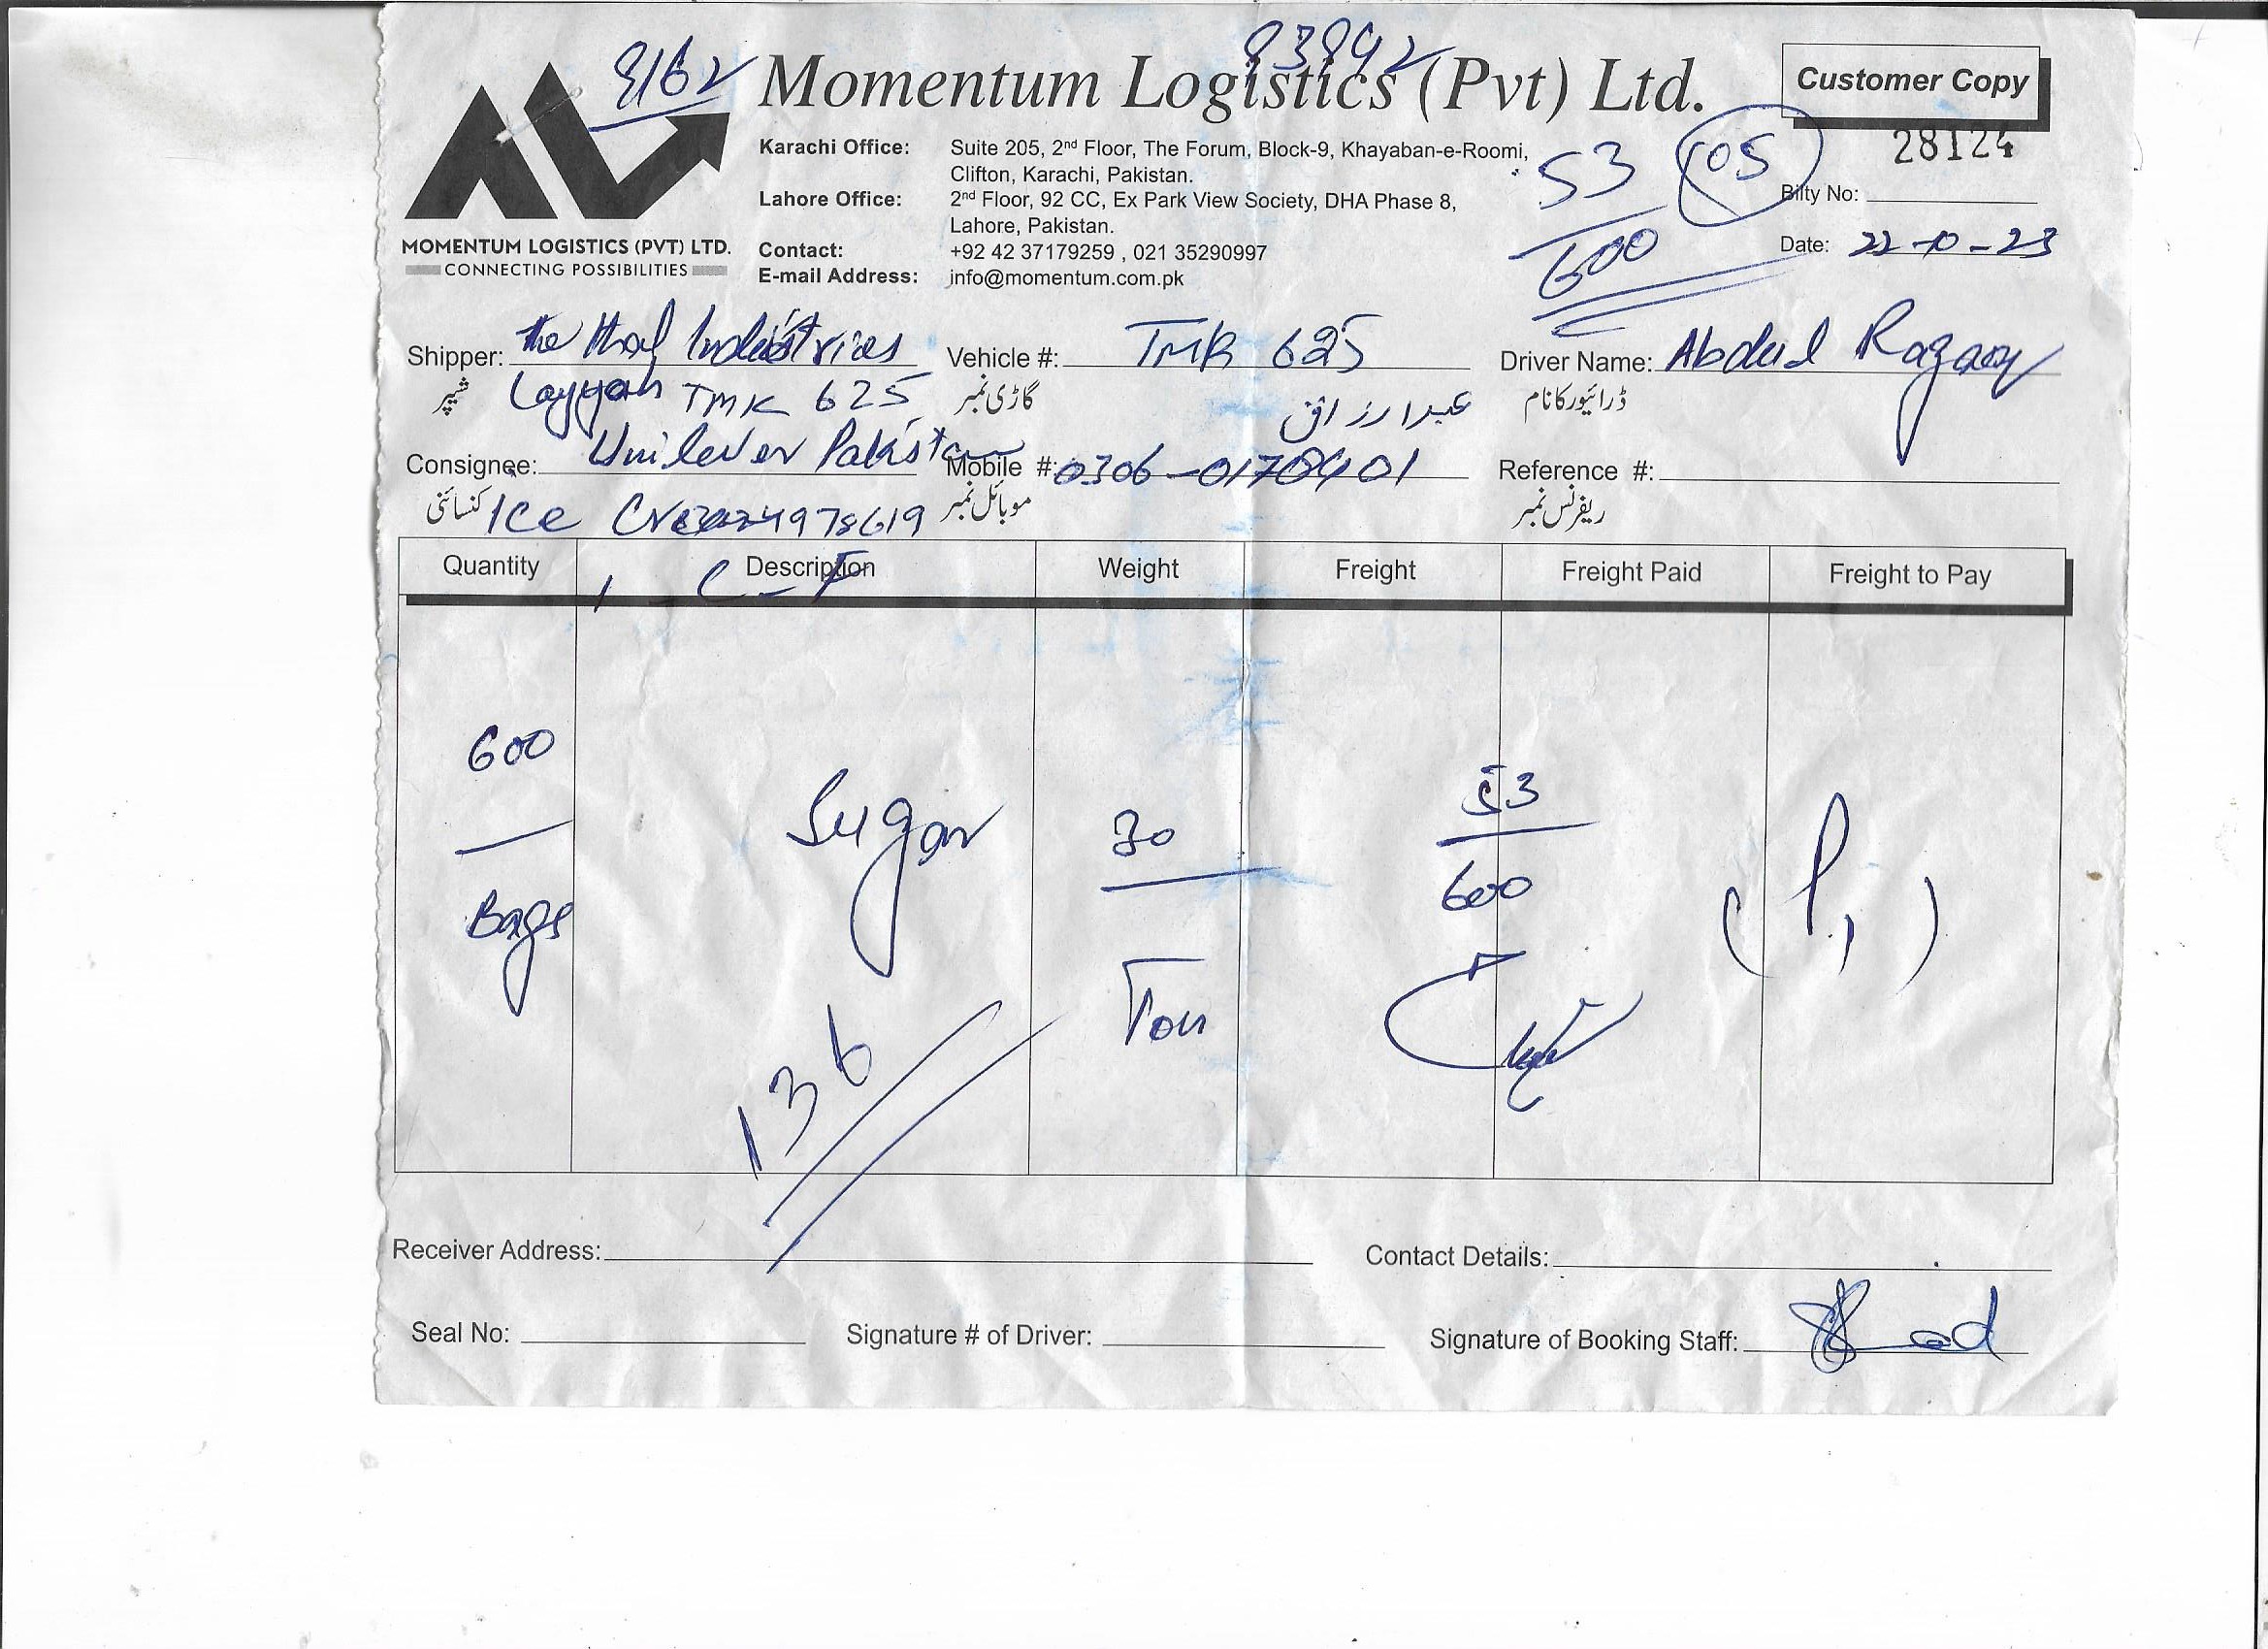 9162
93942
Momentum Logistics (Pvt) Ltd.
Customer Copy
28124
MOMENTUM LOGISTICS (PVT) LTD.
CONNECTING POSSIBILITIES
Karachi Office: Suite 205, 2nd Floor, The Forum, Block-9, Khayaban-e-Roomi,
Clifton, Karachi, Pakistan.
Lahore Office: 2nd Floor, 92 CC, Ex Park View Society, DHA Phase 8,
Lahore, Pakistan.
Contact: +92 42 37179259 , 021 35290997
E-mail Address: info@momentum.com.pk
53
600
05
Bilty No:
Date: 22-10-23
Shipper: the Thal Industries Vehicle #: TMK 625 Driver Name: Abdul Razaq
شیپر Layyah TMK 625 گاڑی نمبر عبدالرزاق ڈرائیور کا نام
Consignee: Unilever Pakistan Mobile #: 0306-0170401 Reference #:
کنسائنی Ice موبائل نمبر ریفرنس نمبر
Quantity Description Weight Freight Freight Paid Freight to Pay
C-F
600 Bags
Sugar
30 Ton
53
600
136
Receiver Address: Contact Details:
Seal No: Signature # of Driver: Signature of Booking Staff: